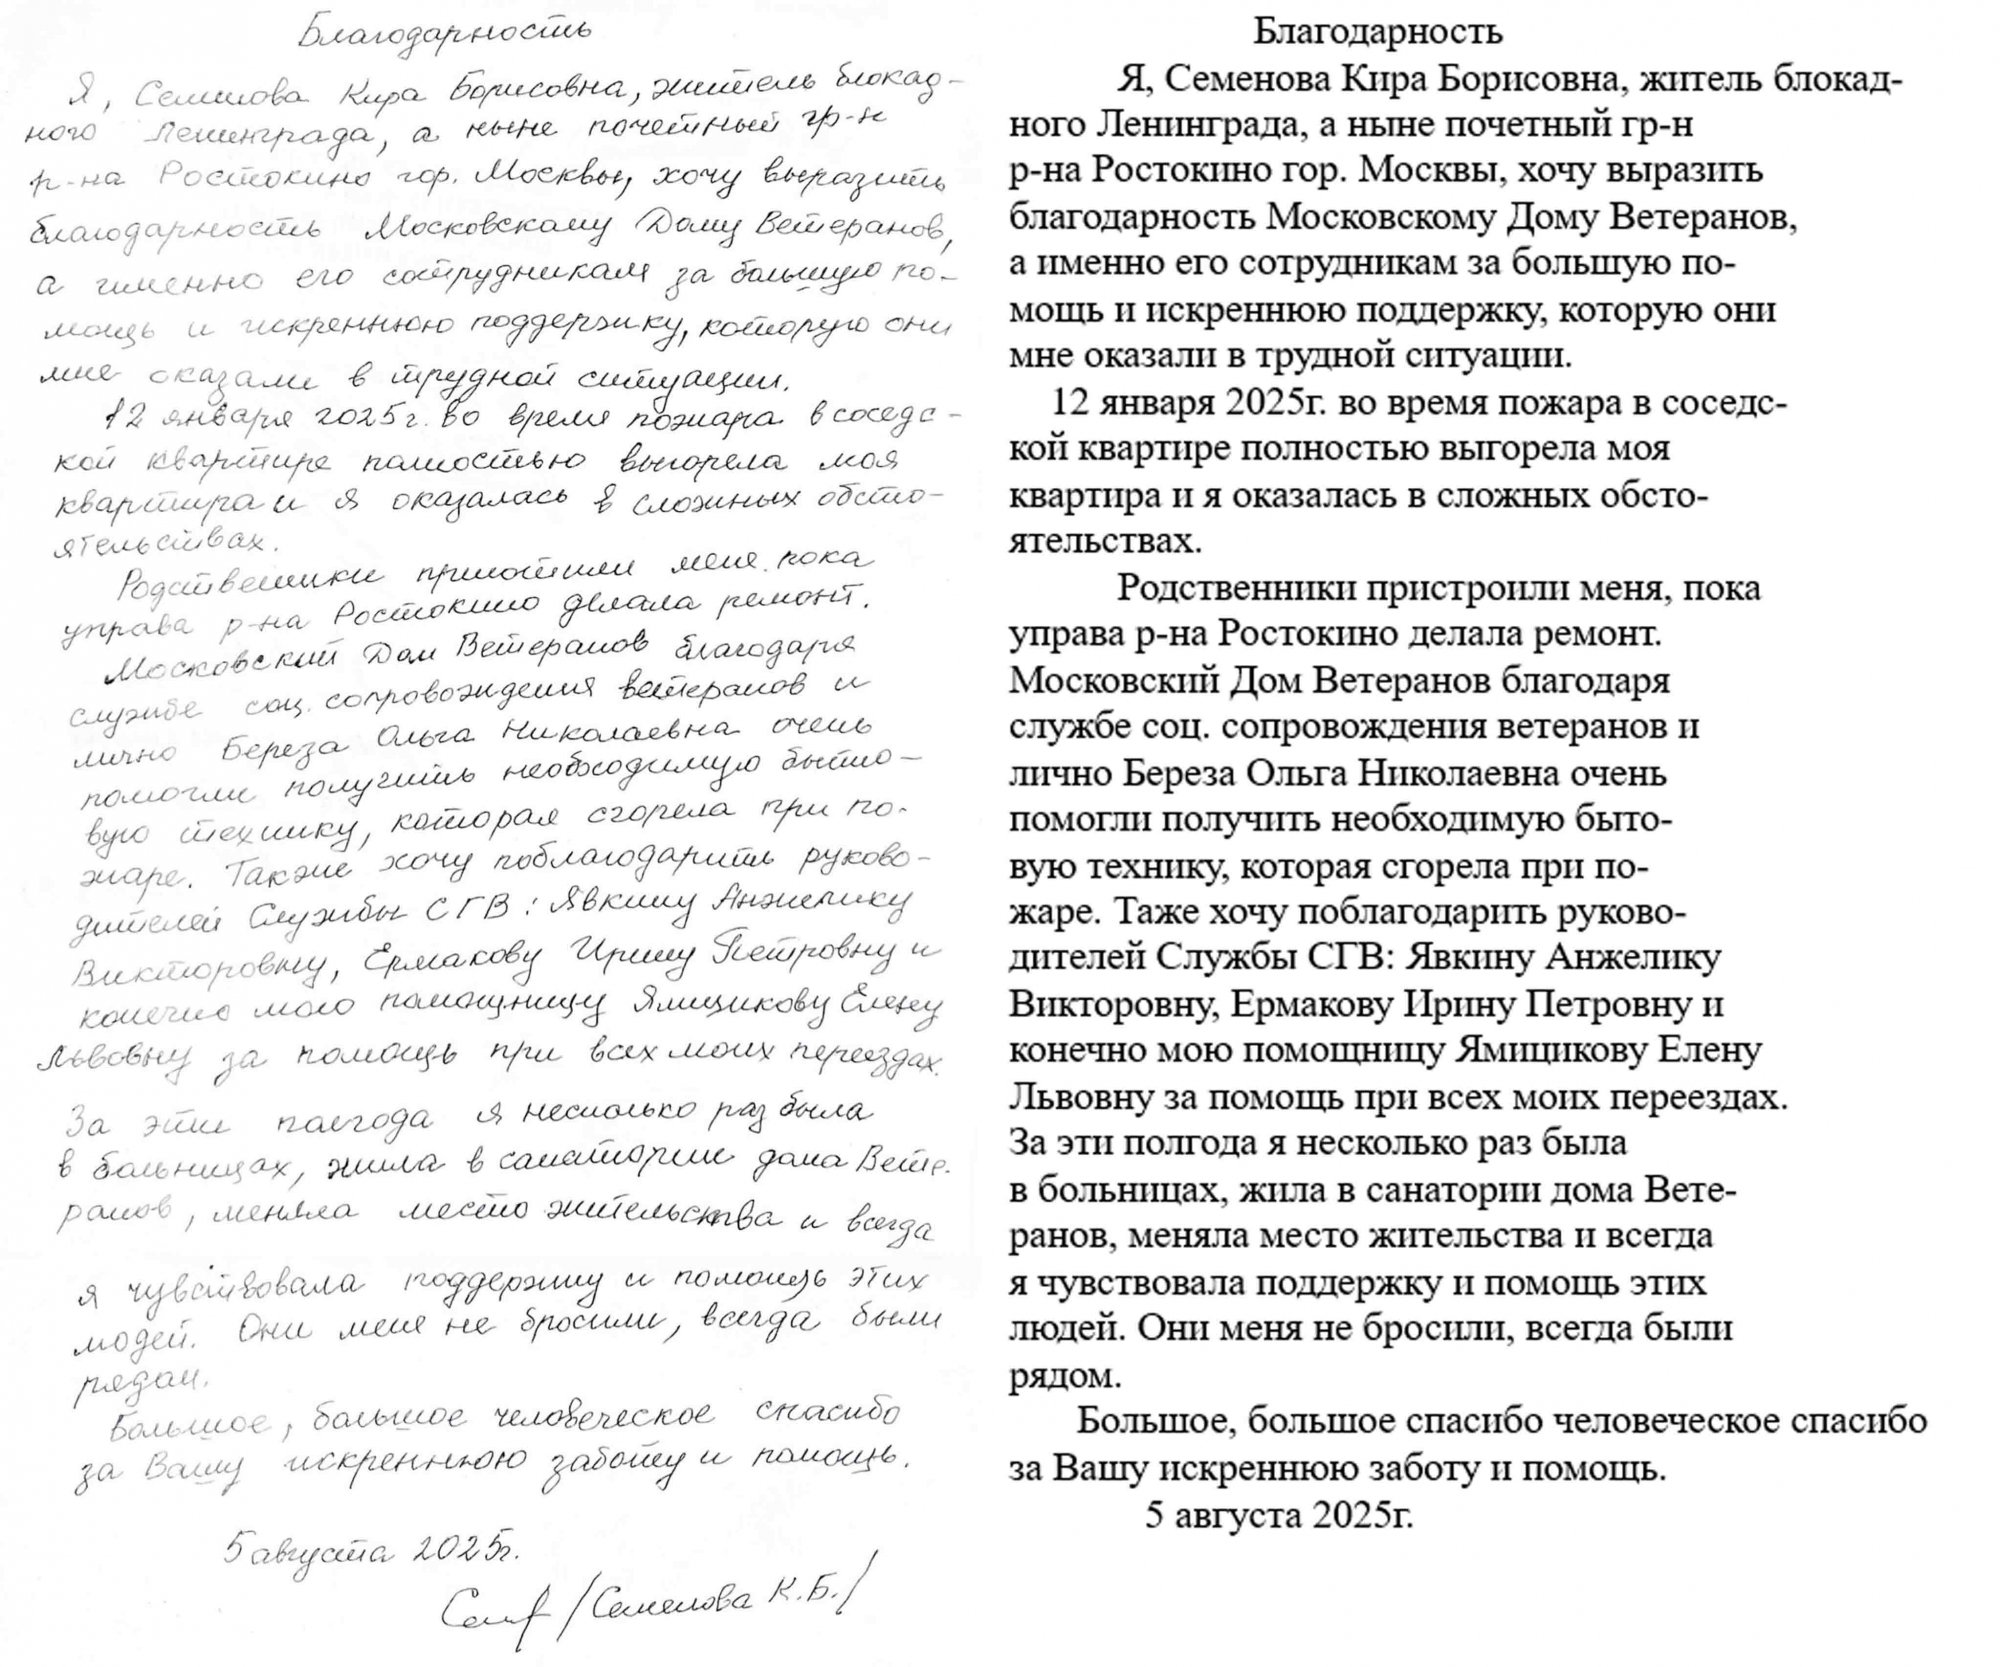 Благодарность
Я, Семенова Кира Борисовна, житель блокад-
ного Ленинграда, а ныне почетный гр-н
р-на Ростокино гор. Москвы, хочу выразить
благодарность Московскому Дому Ветеранов,
а именно его сотрудникам за большую по-
мощь и искреннюю поддержку, которую они
мне оказали в трудной ситуации.
12 января 2025г. во время пожара в соседс-
кой квартире полностью выгорела моя
квартира и я оказалась в сложных обсто-
ятельствах.
Родственники приютили меня пока
управа р-на Ростокино делала ремонт.
Московский Дом Ветеранов благодаря
службе соц. сопровождения ветеранов и
лично Береза Ольга Николаевна очень
помогли получить необходимую быто-
вую технику, которая сгорела при по-
жаре. Также хочу поблагодарить руково-
дителей Службы СГВ: Явкину Анжелику
Викторовну, Ермакову Ирину Петровну и
конечно мою помощницу Ямщикову Елену
Львовну за помощь при всех моих переездах.
За эти полгода я несколько раз была
в больницах, жила в санатории дома Вете-
ранов, меняла место жительства и всегда
я чувствовала поддержку и помощь этих
людей. Они меня не бросили, всегда были
рядом.
Большое, большое человеческое спасибо
за Вашу искреннюю заботу и помощь.
5 августа 2025г.
/Семенова К.Б./
Благодарность
Я, Семенова Кира Борисовна, житель блокад-
ного Ленинграда, а ныне почетный гр-н
р-на Ростокино гор. Москвы, хочу выразить
благодарность Московскому Дому Ветеранов,
а именно его сотрудникам за большую по-
мощь и искреннюю поддержку, которую они
мне оказали в трудной ситуации.
12 января 2025г. во время пожара в соседс-
кой квартире полностью выгорела моя
квартира и я оказалась в сложных обсто-
ятельствах.
Родственники пристроили меня, пока
управа р-на Ростокино делала ремонт.
Московский Дом Ветеранов благодаря
службе соц. сопровождения ветеранов и
лично Береза Ольга Николаевна очень
помогли получить необходимую быто-
вую технику, которая сгорела при по-
жаре. Таже хочу поблагодарить руково-
дителей Службы СГВ: Явкину Анжелику
Викторовну, Ермакову Ирину Петровну и
конечно мою помощницу Ямицикову Елену
Львовну за помощь при всех моих переездах.
За эти полгода я несколько раз была
в больницах, жила в санатории дома Вете-
ранов, меняла место жительства и всегда
я чувствовала поддержку и помощь этих
людей. Они меня не бросили, всегда были
рядом.
Большое, большое спасибо человеческое спасибо
за Вашу искреннюю заботу и помощь.
5 августа 2025г.